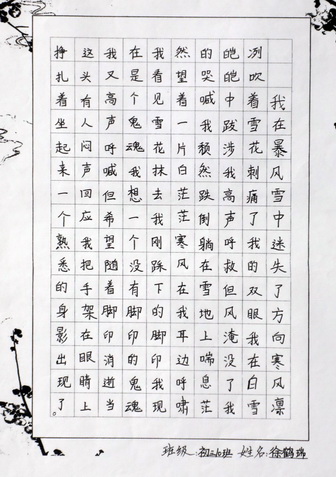 我在暴风雪中迷失方向寒风凛
冽吹着雪花刺痛了我的双眼我在白雪
皑皑中跋涉我高声呼救但风淹没了我
的哭喊我顿然跌倒躺在雪地上喘息茫
然望着一片白茫茫寒风在我耳边呼啸
我看见雪花抹去我刚踩下的脚印我现
在是个鬼魂我想一个没有脚印的鬼魂
我又高声呼喊但希望随着脚印消逝当
这头有人闷声回应我把手架在眼睛上
挣扎着坐起来一个熟悉的身影出现了。
班级 姓名:徐鹤瑞